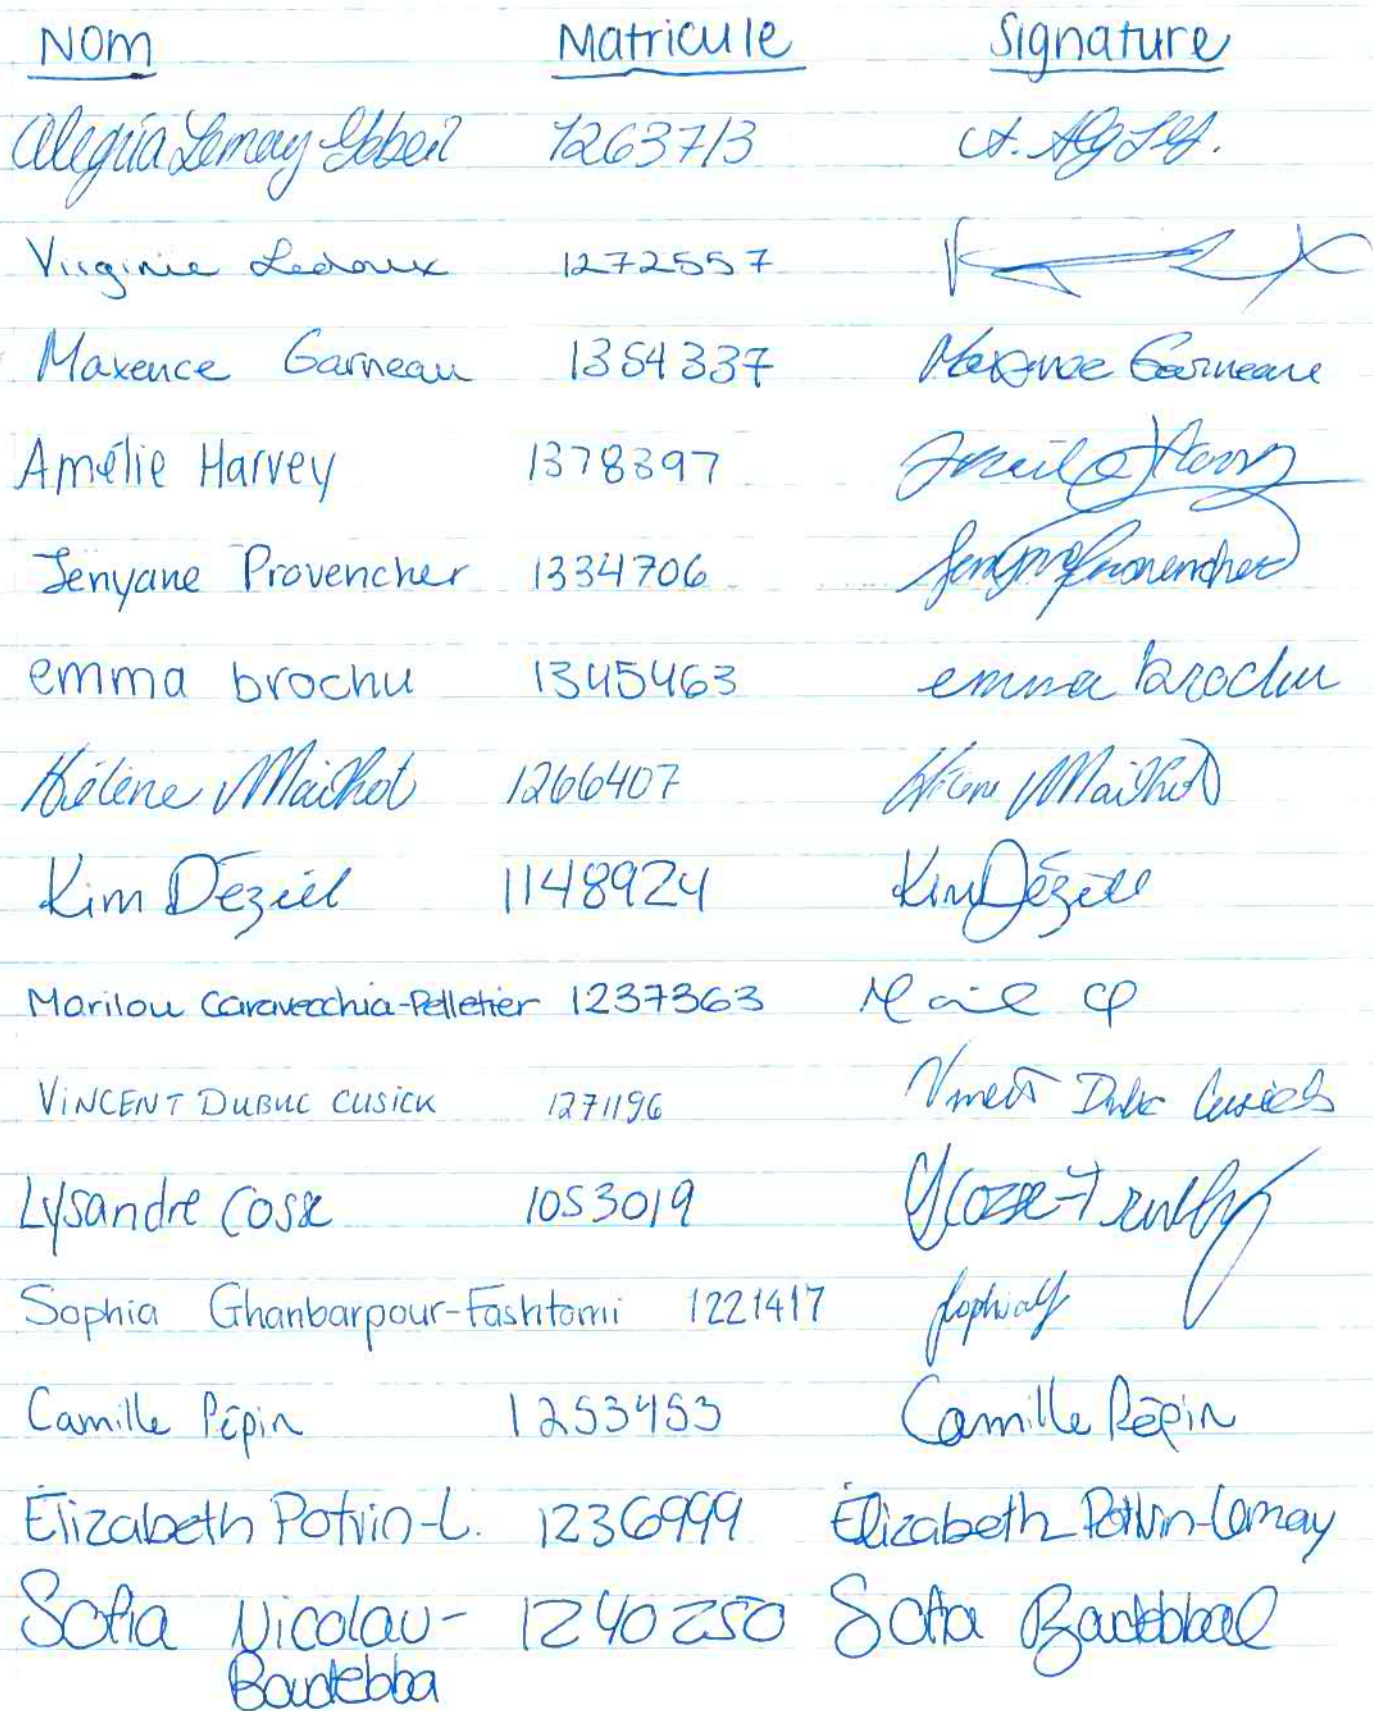 Nom Matricule Signature
Lemay 1263713
Virginie Ledoux 1272557
Maxence Garneau 1354337 Maxence Garneau
Amélie Harvey 1378397
Jenyane Provencher 1334706 Provencher
emma brochu 1345463 emma brochu
Hélène Mailhot 1266407 Hélène Mailhot
Kim Déziel 1148924 Kim Déziel
Marilou Caravecchia-Pelletier 1237363
VINCENT DUBUC CUSICK 1271196 Vincent Dubuc Cusick
Lysandre Cosse 1053019
Sophia Ghanbarpour-Fashtomi 1221417
Camille Pépin 1253453 Camille Pépin
Élizabeth Potvin-L. 1236999 Élizabeth Potvin-Lemay
Sofia Nicolau- 1240250 Sofia
Boudebba